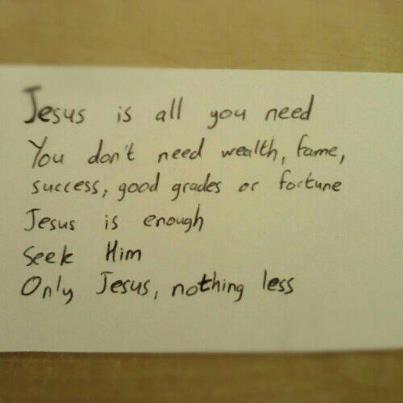 Jesus is all you need
You don't need wealth, fame,
success, good grades or fortune
Jesus is enough
Seek Him
Only Jesus, nothing less